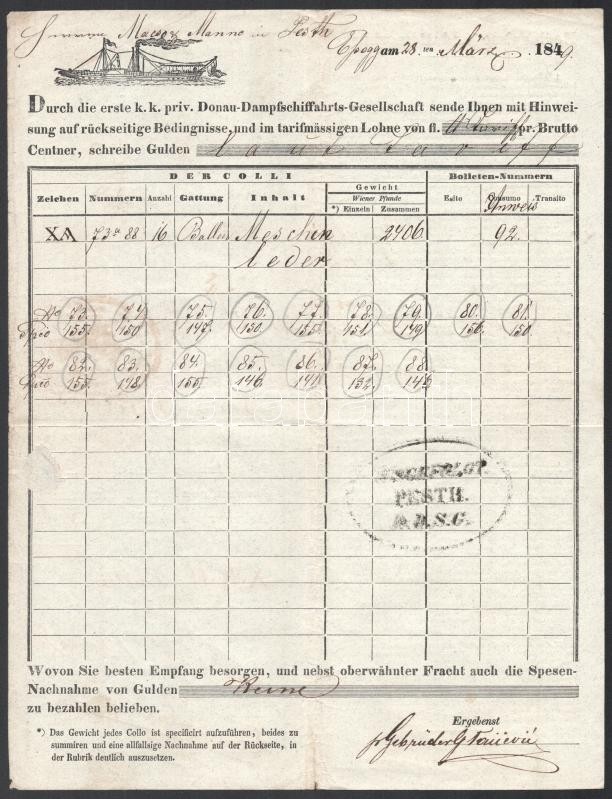 Herrn Macso & Manno in Pesth
am 28 ten März 1849.
Durch die erste k. k. priv. Donau-Dampfschiffahrts-Gesellschaft sende Ihnen mit Hinwei-
sung auf rückseitige Bedingnisse, und im tarifmässigen Lohne von fl. pr. Brutto
Centner, schreibe Gulden laut Tariff
DER COLLI Bolleten-Nummern
Gewicht
Wiener Pfunde
Zeichen Nummern Anzahl Gattung Inhalt *) Einzeln Zusammen Esito Consumo Transito
Anweis
73 a 88 16 Ballen Meschin 2406 92.
leder
No 73. 74. 75. 76. 77. 78. 79. 80. 81.
Spco 155. 150 147. 150. 155. 151. 149 156. 150.
No 82. 83. 84. 85. 86. 87. 88.
Spco 155. 148. 155. 146. 132.
PESTH.
D. D. S. G.
Wovon Sie besten Empfang besorgen, und nebst oberwähnter Fracht auch die Spesen-
Nachnahme von Gulden Keine
zu bezahlen belieben.
*) Das Gewicht jedes Collo ist specificirt aufzuführen, beides zu
summiren und eine allfallsige Nachnahme auf der Rückseite, in
der Rubrik deutlich auszusetzen.
Ergebenst
pr Gebrüder